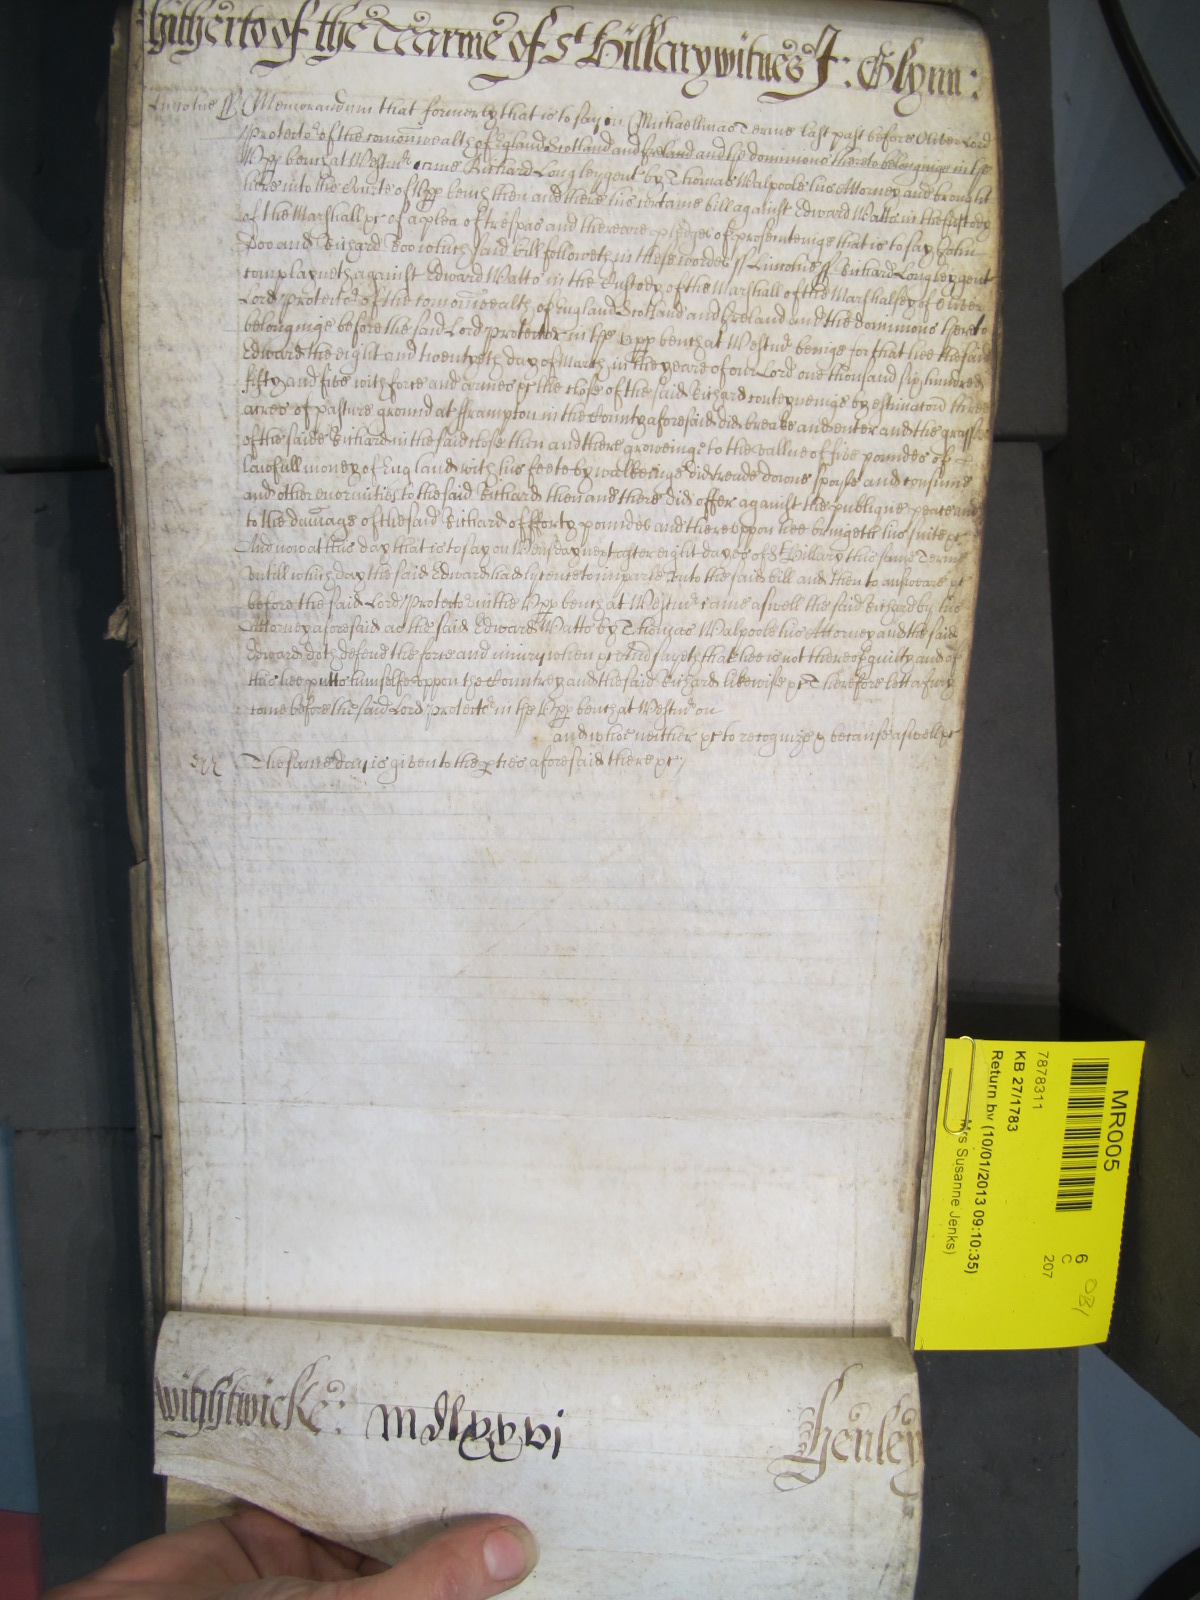 hitherto of the Tearme of St Hillary witnes J: Glynn:
Lincolne ss Memorandum that formerly that is to say in Michaellmas Terme last past before Oliver Lord
Protector of the comonwealth of England Scotland and Ireland and the dominions thereto belonginge in the
Upp bench at Westmr came Richard Longley gent by Thomas Walpoole his Attorney and brought
here into the Courte of Upp bench then and there his certaine bill against Edward Watts in the Custody
of the Marshall &c of a plea of trespas and there are pledges of prosecutinge that is to say John
Doo and Richard Roo which said bill followeth in these wordes ss Lincolne ss Richard Longley gent
complayneth against Edward Watts in the Custody of the Marshall of the Marshalsey of Oliver
Lord Protector of the comonwealth of England Scotland and Ireland and the dominions thereto
belonginge before the said Lord Protector in the Upp bench at Westmr beinge for that hee the said
Edward the eight and twentyeth day of March in the yeare of our Lord one thousand six hundred
fifty and five with force and armes &c the close of the said Richard conteyneinge by estimacon three
acres of pasture ground at Frampton in the County aforesaid did breake and enter and the grasse
of the saide Richard in the said close then and there groweinge to the vallue of five poundes of
lawfull money of England with his feete by walkeinge did treade downe spoyle and consume
and other enormities to the said Richard then and there did offer against the publique peace and
to the damage of the said Richard of forty poundes and thereuppon hee bringeth his suite &c
And now at this day that is to say on Wensday next after eight dayes of St Hillary this same Terme
Untill which day the said Edward had lycence to imparle unto the said bill and then to answere &c
before the said Lord Protector in the Upp bench at Westmr came aswell the said Richard by his
Attorney aforesaid as the said Edward Watts by Thomas Walpoole his Attorney and the said
Edward doth defend the force and iniury when &c And sayeth that hee is not thereof guilty and of
this hee putts himselfe uppon the Countrey and the said Richard likewise &c Therefore lett a Jury
come before the said Lord Protector in the Upp bench at Westmr on
and who neither &c to recognize &c because aswell &c
The same day is given to the pties aforesaid there &c
Wightwicke: mdlxxxvi Henley
MR005
7878311
KB 27/1783
Return by (10/01/2013 09:10:35)
Mrs Susanne Jenks)
6
C
207